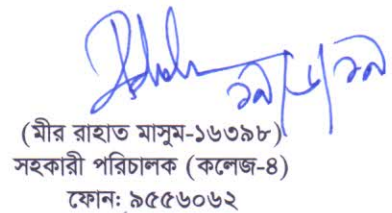 ১৯/৮/১৯
(মীর রাহাত মাসুম-১৬৩৯৮)
সহকারী পরিচালক (কলেজ-৪)
ফোন: ৯৫৫৬০৬২